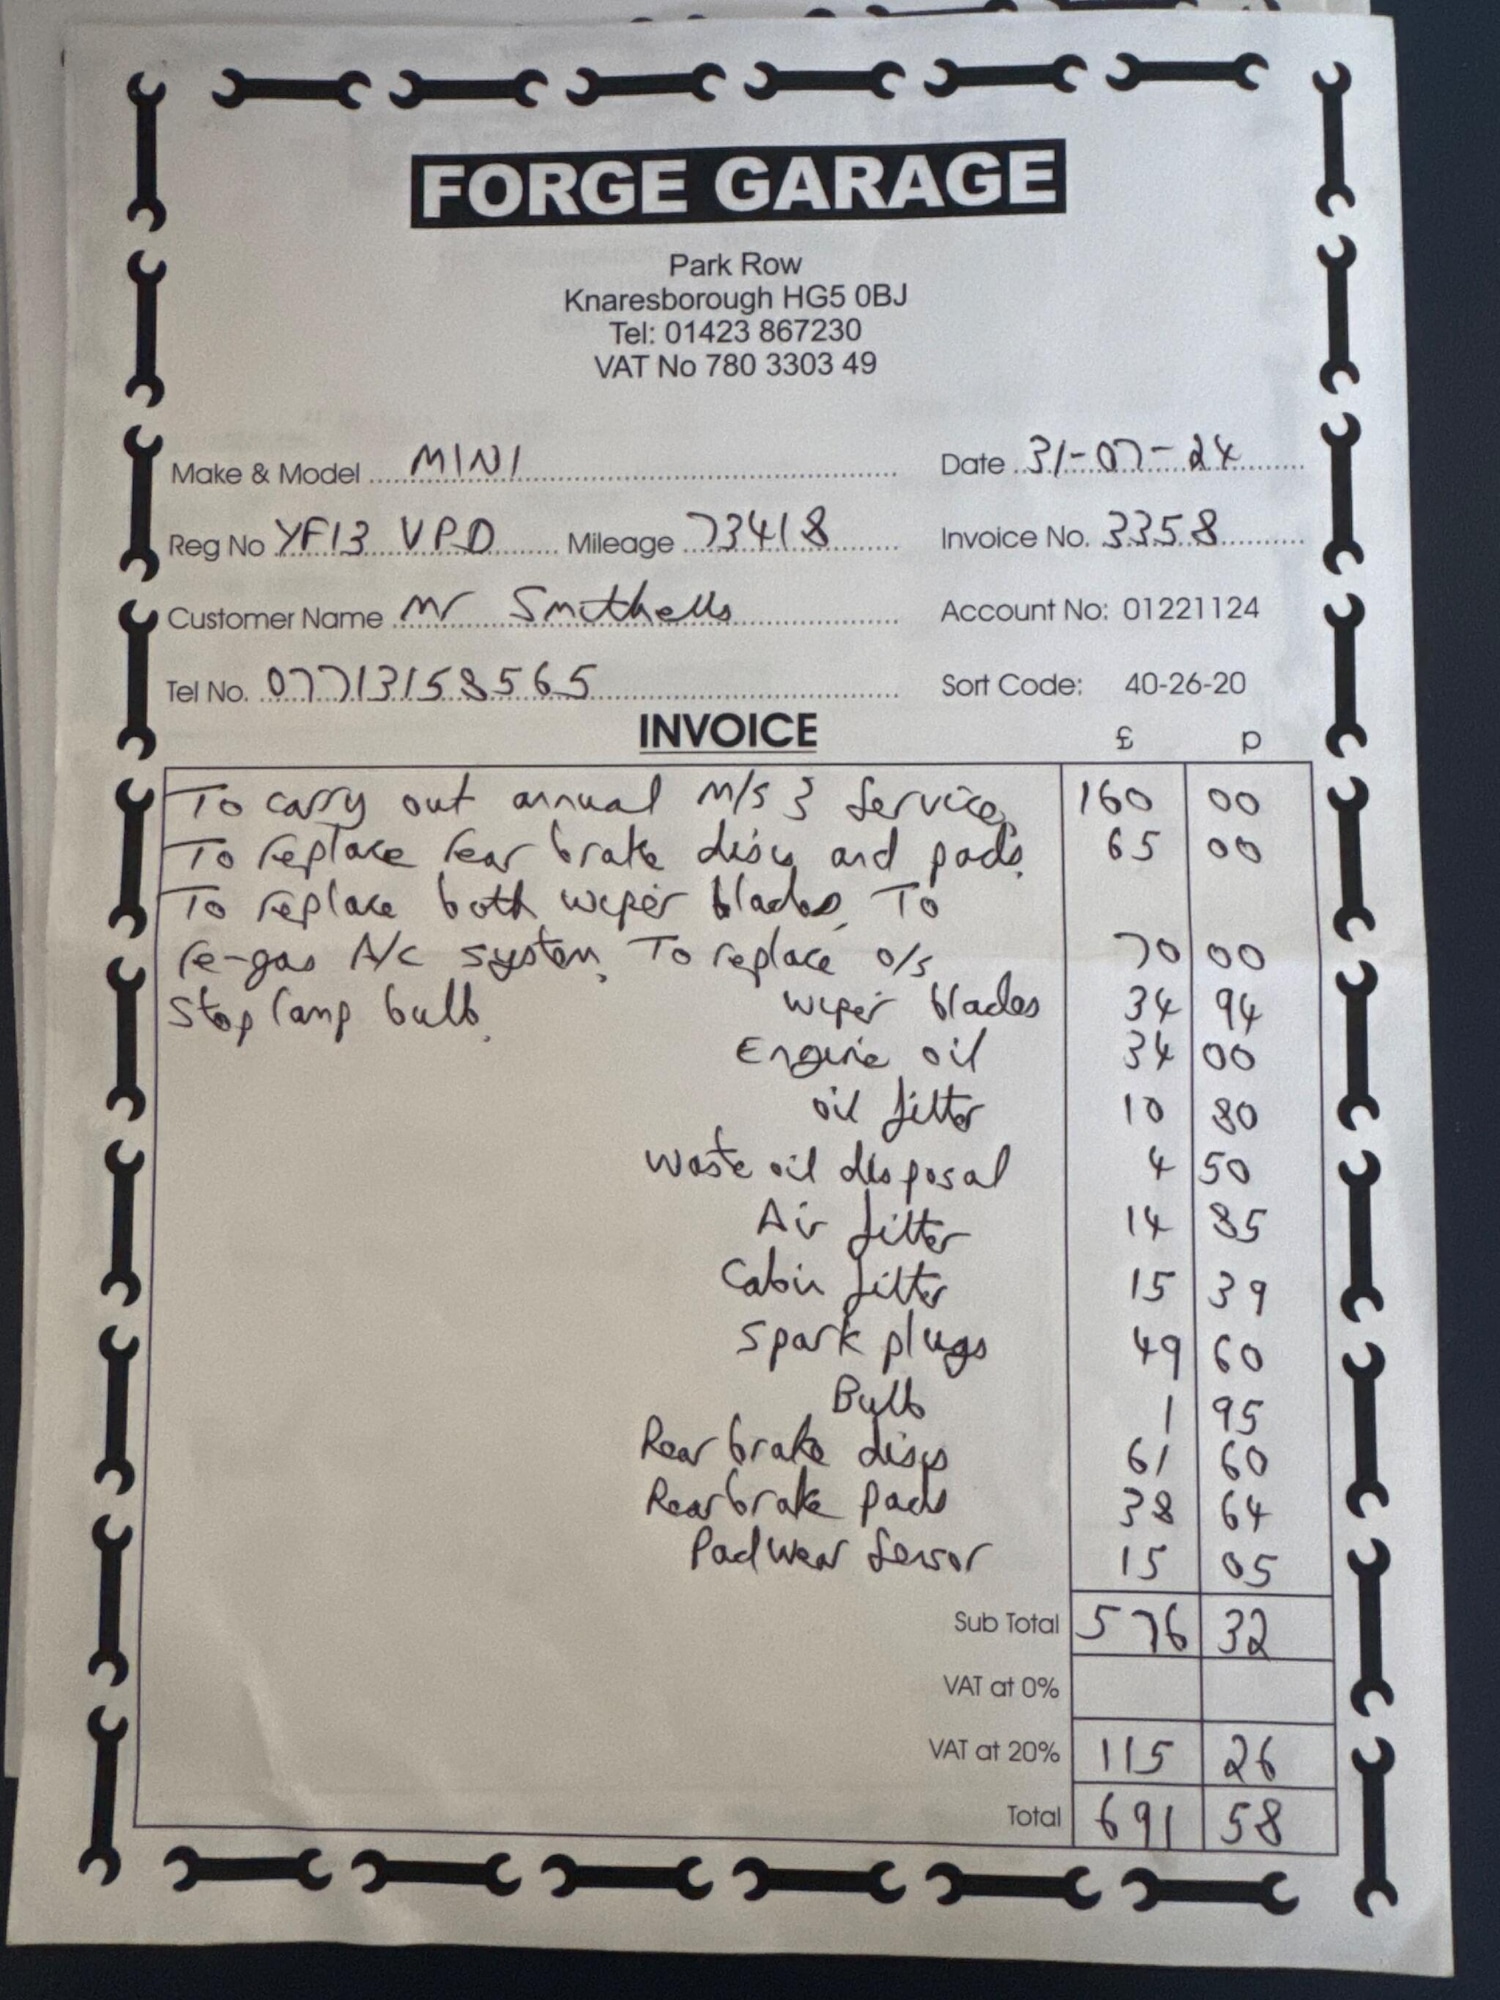 FORGE GARAGE
Park Row
Knaresborough HG5 0BJ
Tel: 01423 867230
VAT No 780 3303 49
Make & Model MINI Date 31-07-24
Reg No YF13 VPD Mileage 73418 Invoice No. 3358
Customer Name Mr Smithells Account No: 01221124
Tel No. 07713158565 Sort Code: 40-26-20
INVOICE £ p
To carry out annual M/S 3 Service, 160 00
To replace rear brake discs and pads. 65 00
To replace both wiper blades, To
re-gas A/C system, To replace o/s 70 00
stop lamp bulb. wiper blades 34 94
Engine oil 34 00
oil filter 10 80
Waste oil disposal 4 50
Air filter 14 85
Cabin filter 15 39
Spark plugs 49 60
Bulb 1 95
Rear brake discs 61 60
Rear brake pads 38 64
Pad Wear Sensor 15 05
Sub Total 576 32
VAT at 0%
VAT at 20% 115 26
Total 691 58